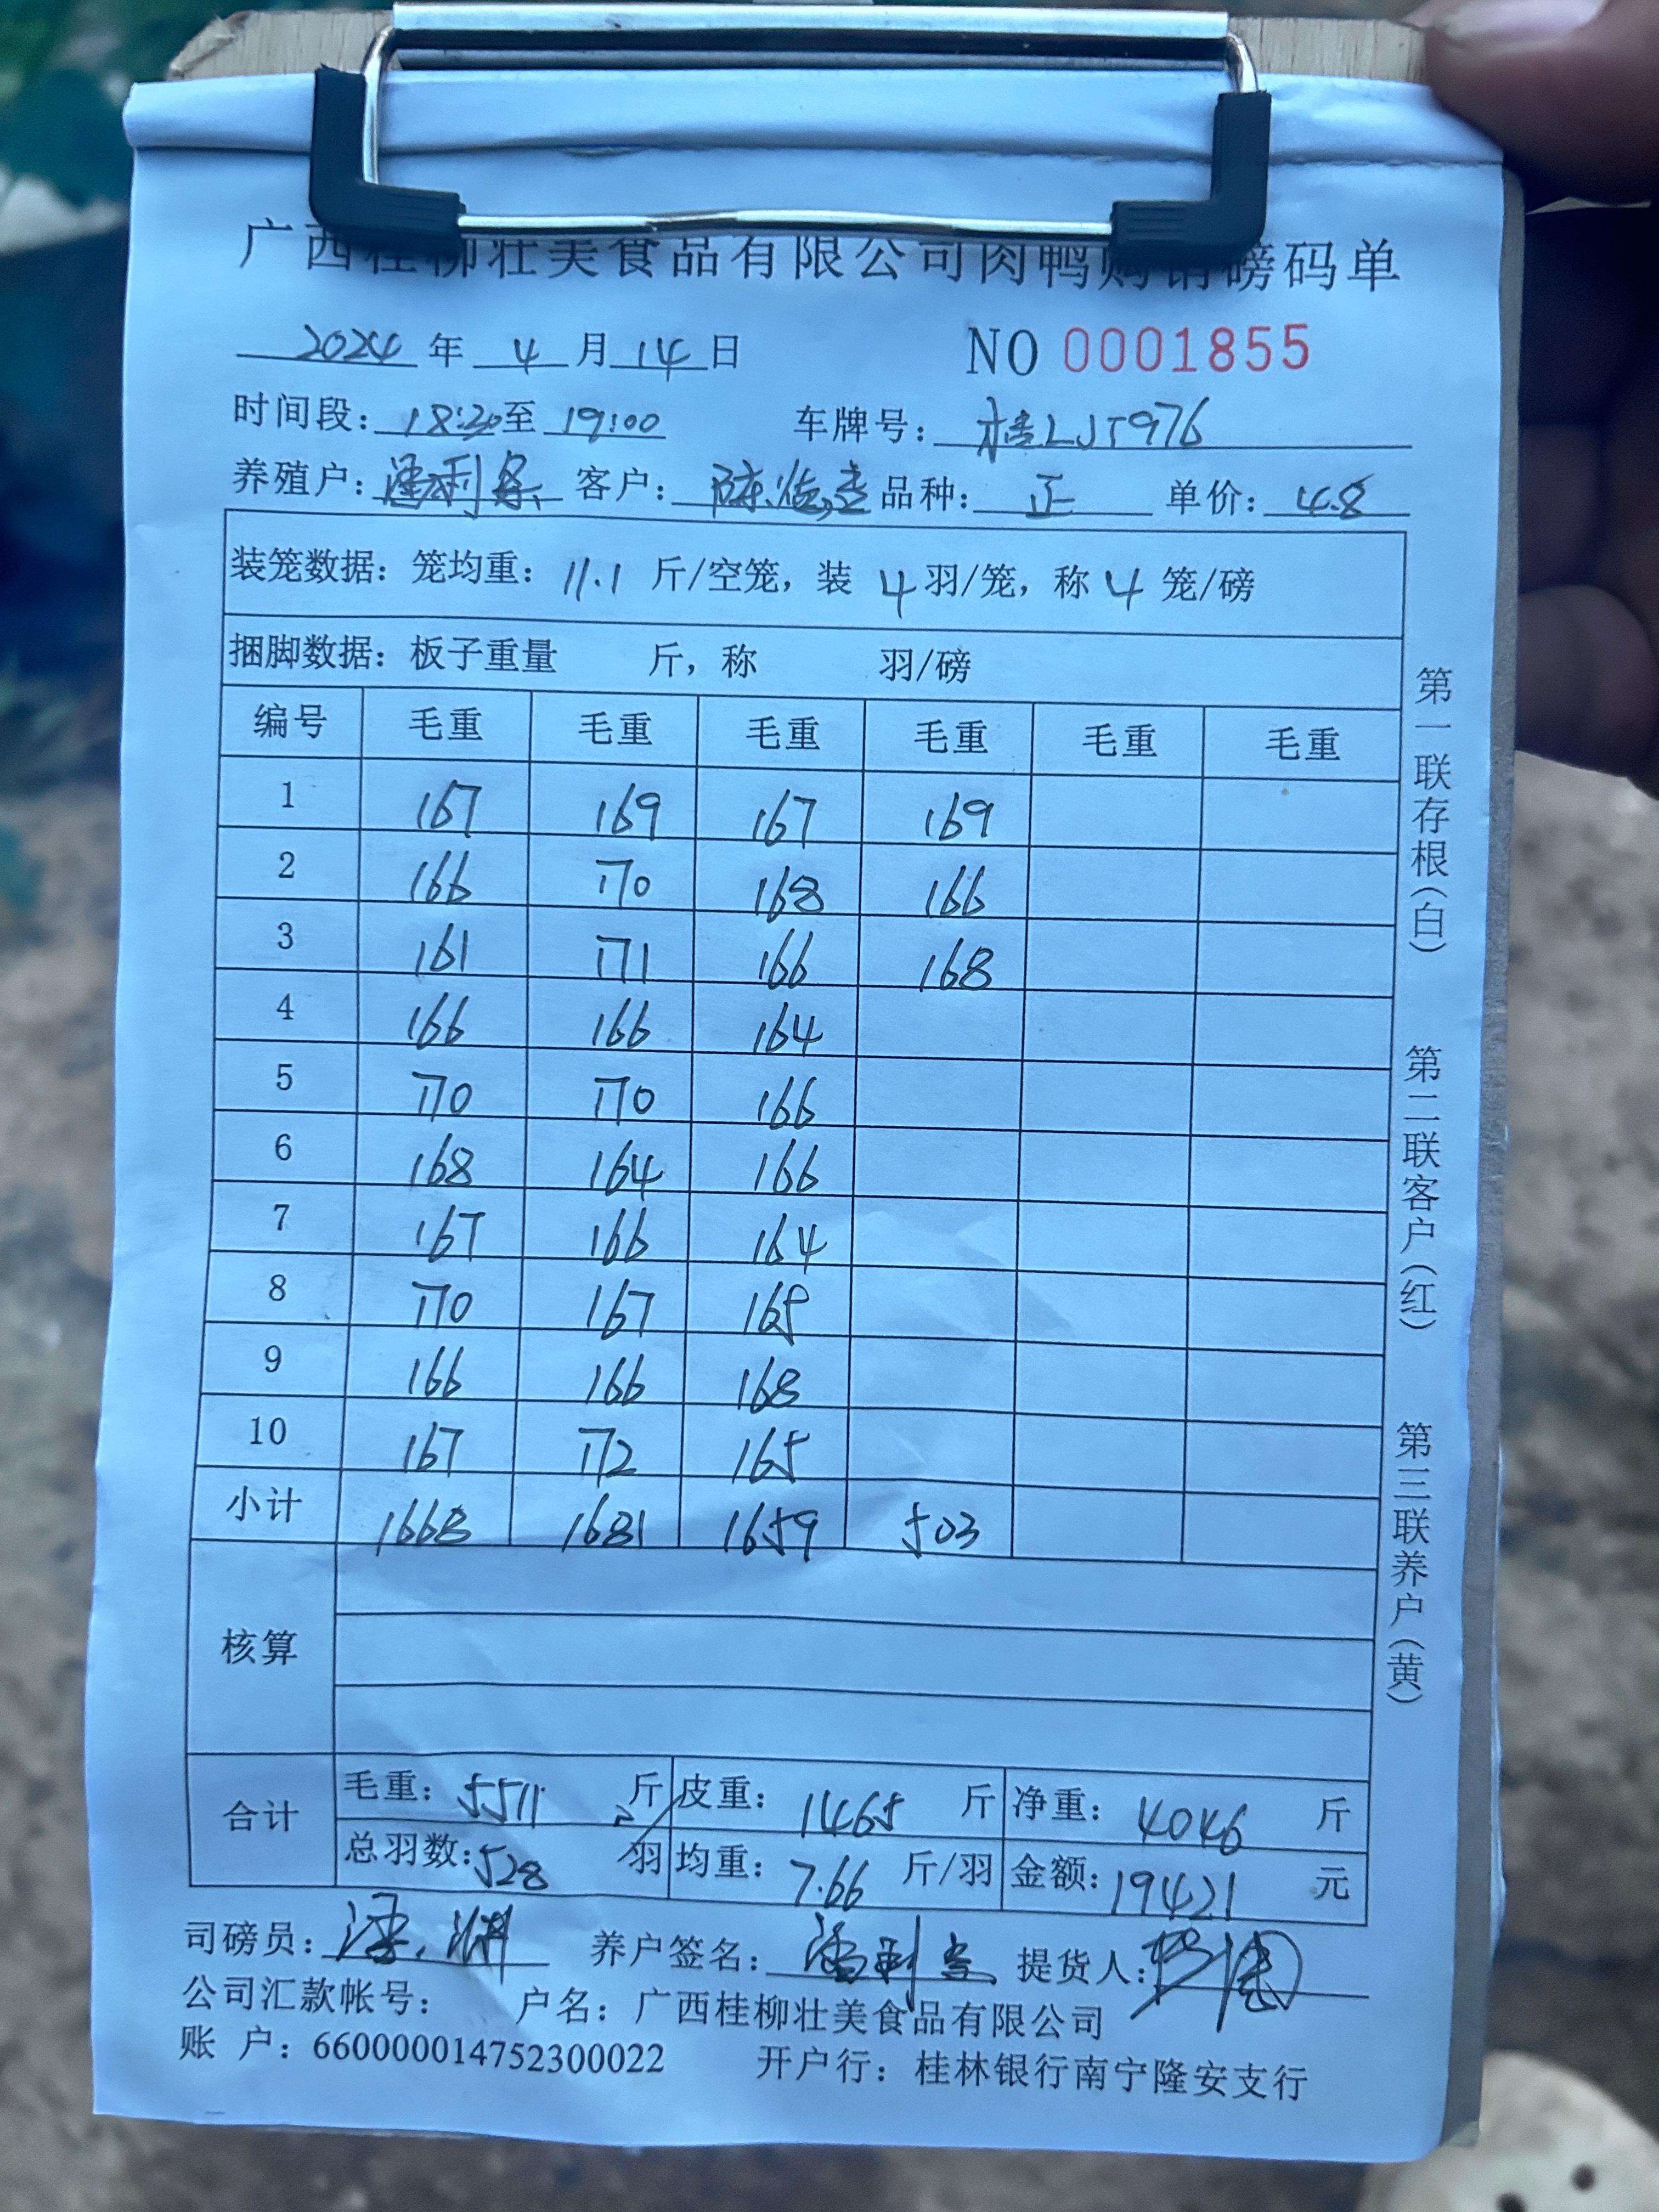 广西桂柳壮美食品有限公司肉鸭购销磅码单
2024 年 4 月 14 日 NO 0001855
时间段: 18:30 至 19:00 车牌号: 桂LJ5976
养殖户: 客户: 品种: 正 单价: 4.8
装笼数据: 笼均重: 11.1 斤/空笼, 装 4 羽/笼, 称 4 笼/磅
捆脚数据: 板子重量 斤, 称 羽/磅
编号 毛重 毛重 毛重 毛重 毛重 毛重
1 167 169 167 169
2 166 170 168 166
3 161 171 166 168
4 166 166 164
5 170 170 166
6 168 164 166
7 167 166 164
8 170 167 165
9 166 166 168
10 167 172 165
小计 1668 1681 1659 503
核算
合计 毛重: 5511 斤 皮重: 1465 斤 净重: 4046 斤
总羽数: 528 羽 均重: 7.66 斤/羽 金额: 19421 元
司磅员: 养户签名: 提货人:
公司汇款帐号: 户名: 广西桂柳壮美食品有限公司
账 户: 660000014752300022 开户行: 桂林银行南宁隆安支行
第一联存根(白) 第二联客户(红) 第三联养户(黄)